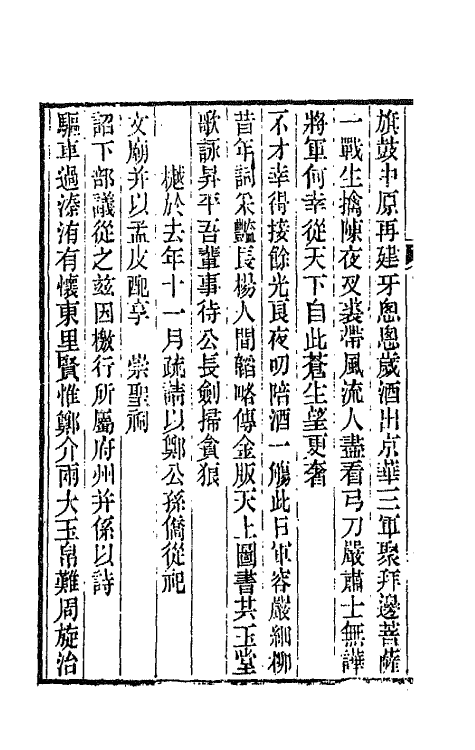 旗鼓中原再建牙悤悤歲酒出京華三軍聚拜邊菩薩
一戰生擒陳夜叉裘帶風流人盡看弓刀嚴肅士無譁
將軍何幸從天下自此蒼生望更奢
不才幸得接餘光良夜叨陪酒一觴此日軍容嚴細柳
昔年詞采豔長楊人間韜略傳金版天上圖書共玉堂
歌詠昇平吾輩事待公長劍掃貪狼
樾於去年十一月疏請以鄭公孫僑從祀
文廟并以孟皮配享　崇聖祠
詔下部議從之兹因檄行所屬府州并係以詩
驅車過溱洧有懷東里賢惟鄭介兩大玉帛難周旋治